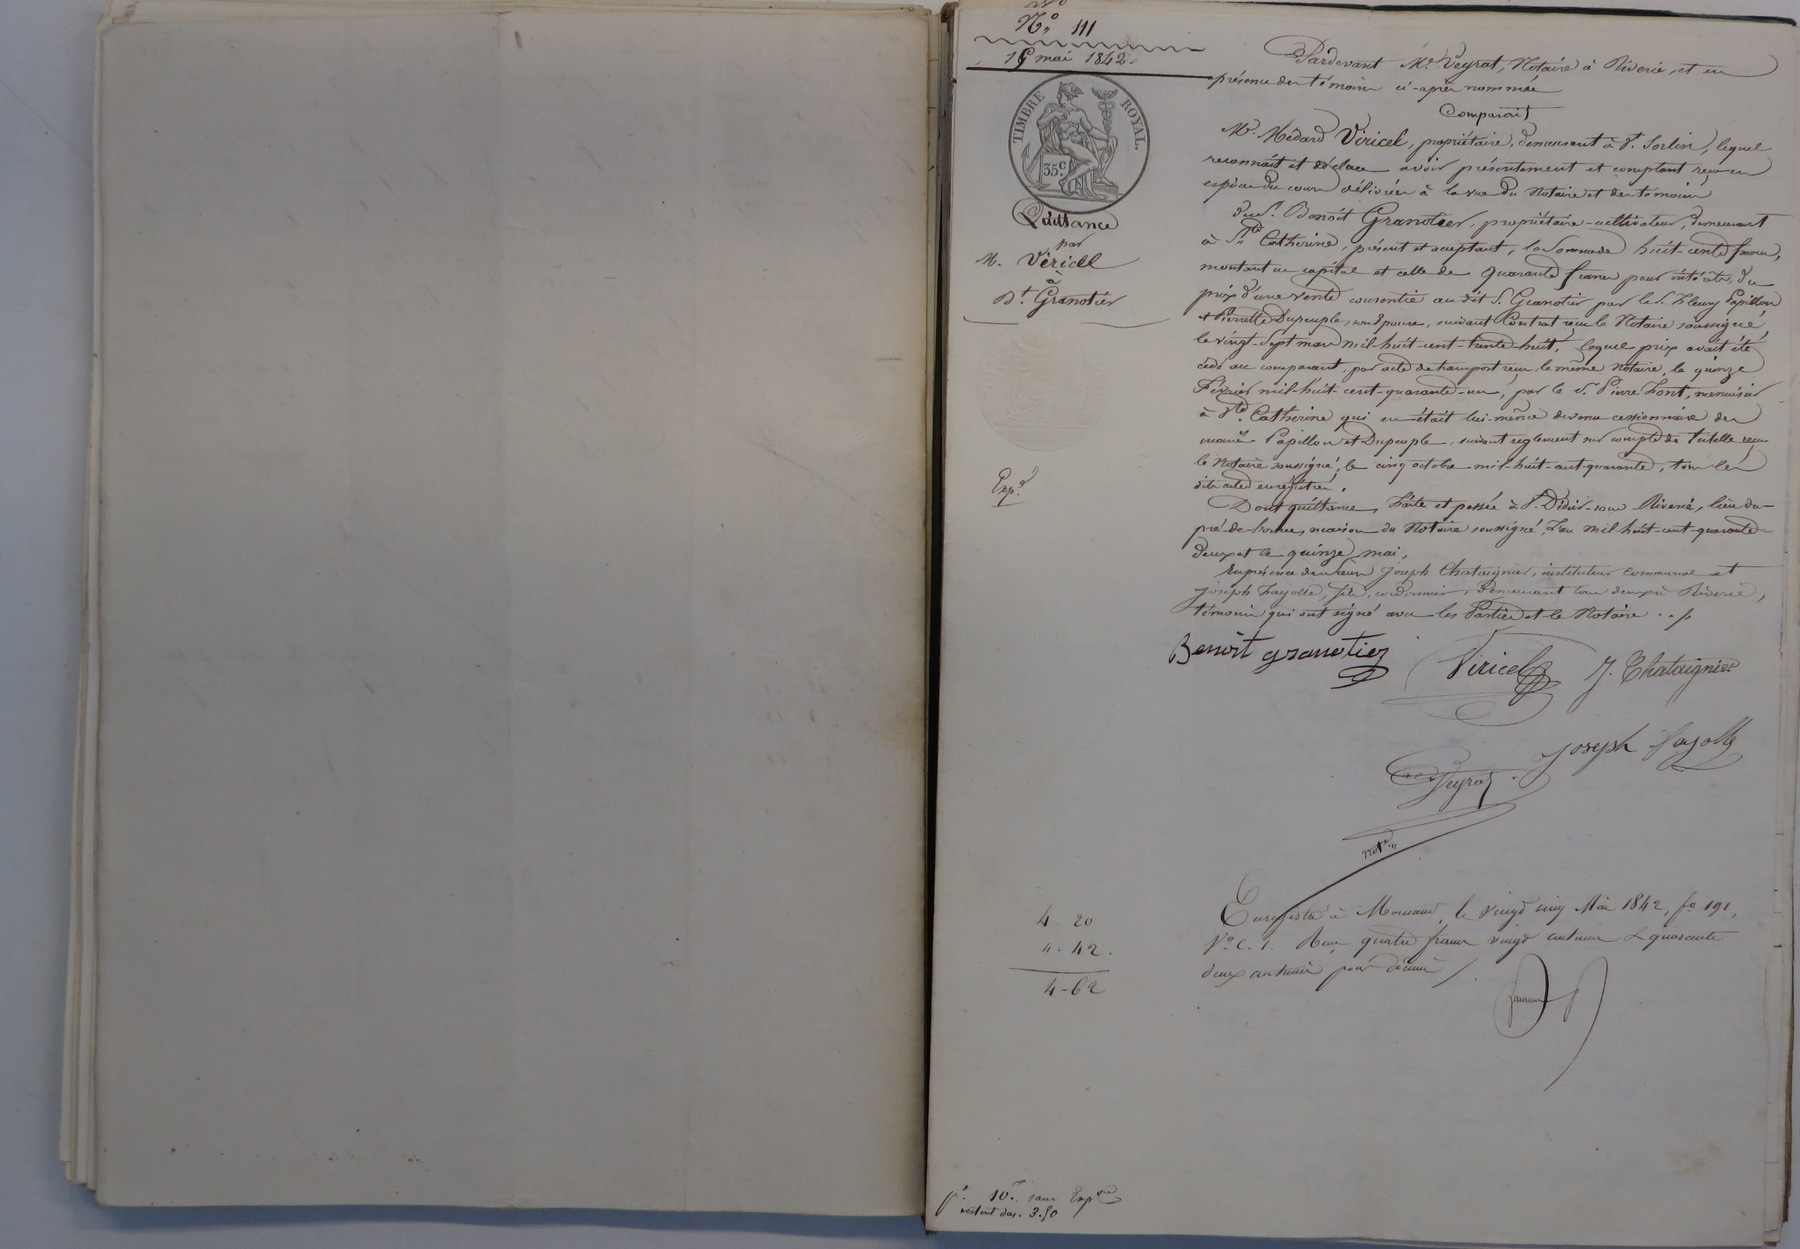 N.º 111
15 mai 1842.
TIMBRE ROYAL.
35 c.
Quittance
par
M. Véricel
à
B.t Granotier
Exp.é
Pardevant M.e Veyrat, Notaire à Riverie, et en
présence des témoins ci-après nommés
Comparait
M.r Médard Viricel, propriétaire, demeurant à S.t Sorlin, lequel
reconnait et déclare avoir présentement et comptant reçu en
espèces du cours délivrées à la vue du Notaire et des témoins
du S.r Benoit Granotier, propriétaire-cultivateur, demeurant
à S.te Catherine, présent et acceptant, la somme de huit cents francs,
montant en capital et celle de quarante francs pour intérêts, du
prix d'une vente consentie au dit S. Granotier par le S. Fleury Papillon
et Pierrette Dupeuple, son épouse, suivant contrat reçu le Notaire soussigné,
le vingt-sept mars mil-huit-cent-trente-huit, lequel prix avait été
cédé au comparant, par acte de transport reçu le même Notaire, le quinze
Février mil-huit-cent-quarante-un, par le S. Pierre Font, menuisier
à S.te Catherine qui en était lui-même devenu cessionnaire des
mariés Papillon et Dupeuple, suivant règlement sur compte de tutelle reçu
le Notaire soussigné, le cinq octobre mil-huit-cent-quarante, tous les
dits actes enregistrés.
Dont quittance, Faite et passée à S.t Didier-sous Riverie, lieu du
pré-de- maison du Notaire soussigné, l'an mil huit-cent-quarante-
deux et le quinze mai,
En présence des sieurs Joseph Chataignier, instituteur communal et
Joseph Fayolle, fils, cordonnier, demeurant tous deux à Riverie,
témoins qui ont signé avec les Parties et le Notaire . . /.
Benoît granotier Viricel J. Chataignier
Joseph Fayolle
Veyrat
not.re
4. 20
". 42.
4-62
Enregistré à Mornant, le vingt cinq Mai 1842, f.o 191,
V.o C. 1. Reçu quatre francs vingt centimes & quarante
deux centimes pour décime /.
10. sans Exp.on
restent dus. 3.50